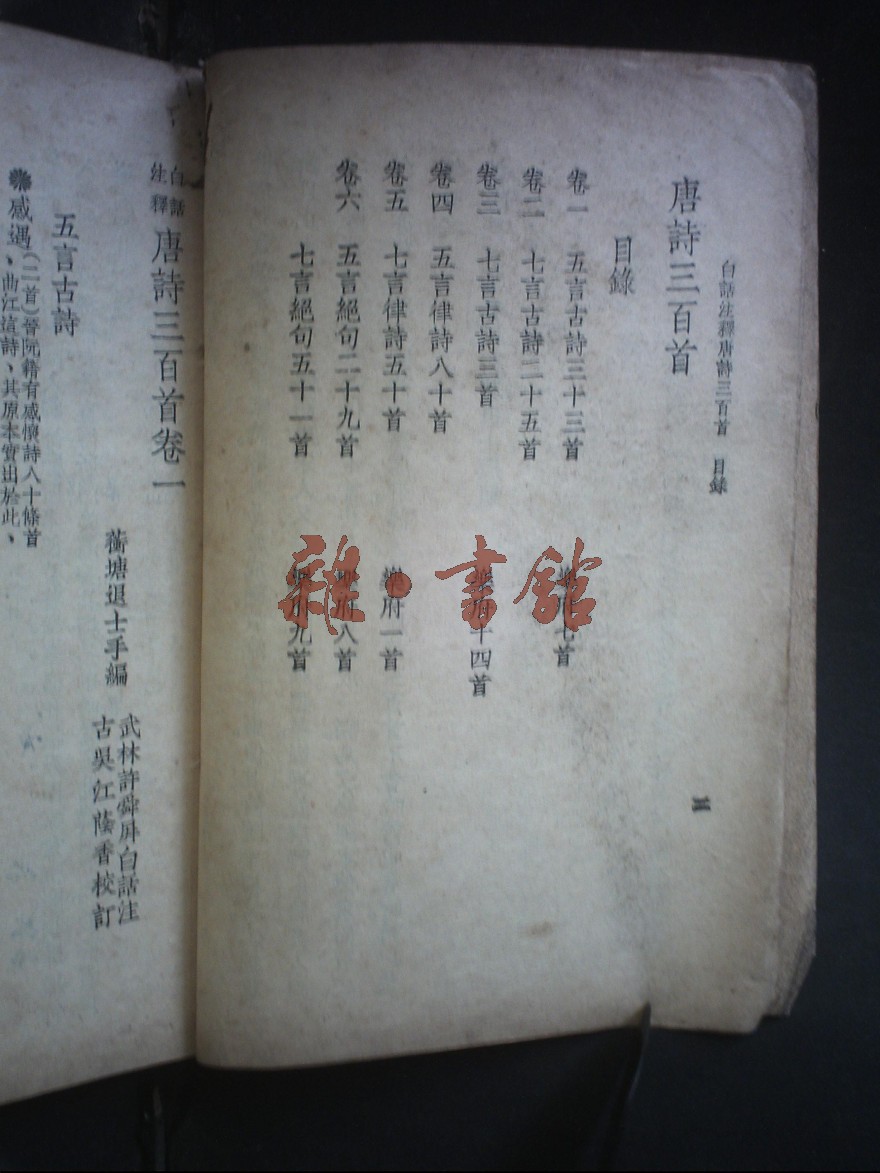 白話注釋唐詩三百首　目錄
二
唐詩三百首
目錄
卷一　五言古詩三十三首　樂府七首
卷二　七言古詩二十五首
卷三　七言古詩三首　樂府十四首
卷四　五言律詩八十首
卷五　七言律詩五十首　樂府一首
卷六　五言絕句二十九首　樂府八首
七言絕句五十一首　樂府九首
雜·書館
白話
注釋
唐詩三百首卷一
蘅塘退士手編
武林許舜屏白話注
古吳江蔭香校訂
五言古詩
感遇（二首）晉阮籍有感懷詩八十條首
、曲江這詩、其原本實出於此、